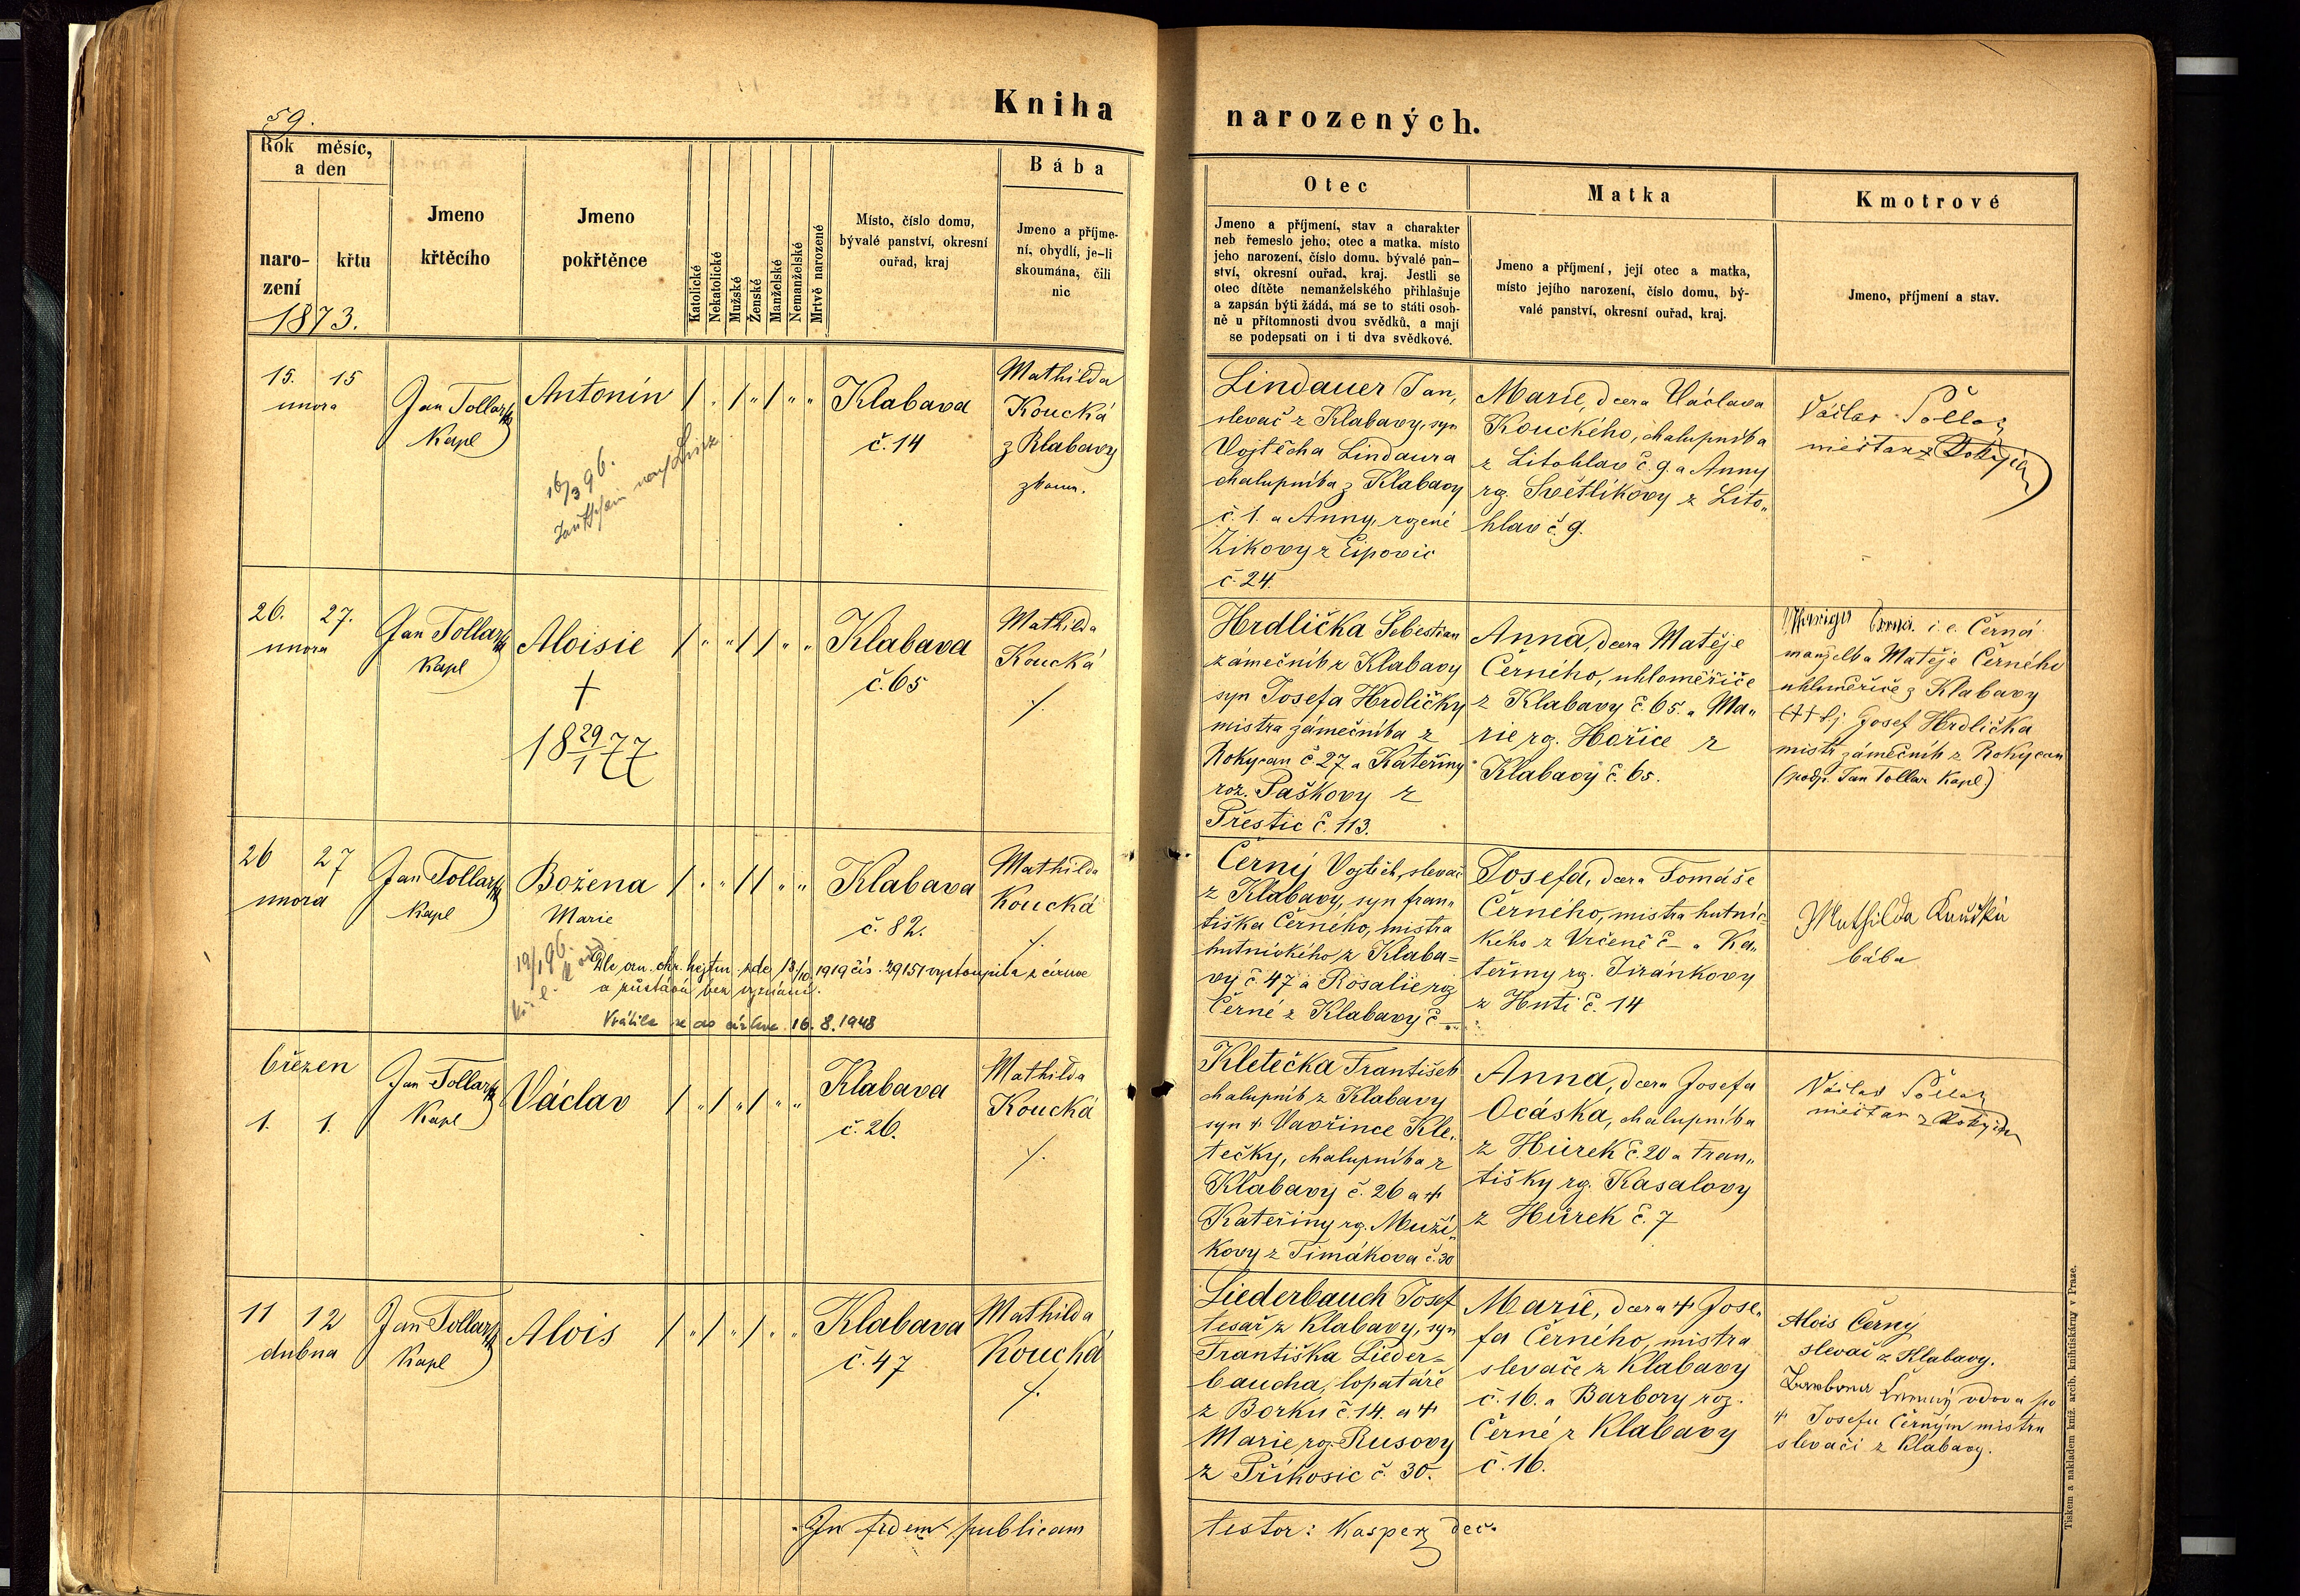 Kniha narozených.
59.
Rok měsíc, a den
narození
křtu
1873.
Jmeno křtěcího
Jmeno pokřtěnce
Katolické
Nekatolické
Mužské
Ženské
Manželské
Nemanželské
Mrtvě narozené
Místo, číslo domu,
bývalé panství, okresní
ouřad, kraj
Bába
Jmeno a příjme-
ní, obydlí, je-li
skoumána, čili
nic
Otec
Jmeno a příjmení, stav a charakter
neb řemeslo jeho; otec a matka, místo
jeho narození, číslo domu, bývalé pan-
ství, okresní ouřad, kraj. Jestli se
otec dítěte nemanželského přihlašuje
a zapsán býti žádá, má se to státi osob-
ně u přítomnosti dvou svědků, a mají
se podepsati on i ti dva svědkové.
Matka
Jmeno a příjmení, její otec a matka,
místo jejího narození, číslo domu, bý-
valé panství, okresní ouřad, kraj.
Kmotrové
Jmeno, příjmení a stav.
15. 15
unora
Jan Tollar
Kapl
Antonín
16/3 96.
Klabava
č. 14
Mathilda
Koucká
z Klabavy
zkoum.
Lindauer Jan,
slevač z Klabavy, syn
Vojtěcha Lindaura
chalupníka z Klabavy
č. 1. a Anny, rozené
Zikovy z Ejpovic
č. 24.
Marie, dcera Václava
Kouckého, chalupníka
z Litohlav č. 9. a Anny
rz. Světlíkovy z Lito„
hlav č. 9.
Václav
měšťan z
26. 27.
unora
Jan Tollar
Kapl
Aloisie
†
18 29/1 77
Klabava
č. 65
Mathilda
Koucká
/.
Hrdlička Šebestian
zámečník z Klabavy
syn Josefa Hrdličky
mistra zámečníka z
Rokycan č. 27 a Kateřiny
roz. Paškovy z
Přestic č. 113.
Anna, dcera Matěje
Černího, uhloměřiče
z Klabavy č. 65. a Ma„
rie rz. Hořice z
Klabavy č. 65.
i. e. Černá
manželka Matěje Černého
uhloměřiče z Klabavy
Josef Hrdlička
mistr zámečník z Rokycan
(podp. Jan Tollar Kapl.)
26 27
unora
Jan Tollar
Kapl
Božena
Marie
19/1 96.
Dle ozn. okr. hejtm. zde 13/10 1919 čís. 29151 vystoupila z církve
a zůstává bez vyznání.
Vrátila se do církve 16. 8. 1948
Klabava
č. 82.
Mathilda
Koucká
/.
Černý Vojtěch, slevač
z Klabavy, syn Fran„
tiška Černého, mistra
hutnického z Klaba=
vy č. 47 a Rosalie roz
Černé z Klabavy č —
Josefa, dcera Tomáše
Černého, mistra hutnic
kého z Vrčeně č — a Ka„
teřiny rz. Jiránkovy
z Huti č. 14
Mathilda Koucká
bába
březen
1. 1.
Jan Tollar
Kapl
Václav
Klabava
č. 26.
Mathilda
Koucká
/.
Kletečka František
chalupník z Klabavy
syn † Vavřince Kle„
tečky, chalupníka z
Klabavy č. 26 a †
Kateřiny rz. Muzi„
kovy z Timákova č. 30
Anna, dcera Josefa
Ocáska, chalupníka
z Hůrek č. 20 a Fran„
tišky rz. Kasalovy
z Hůrek č. 7
Václav
měšťan z
11 12
dubna
Jan Tollar
Kapl
Alois
Klabava
č. 47
Mathilda
Koucká
/.
Liederbauch Josef
tesař z Klabavy, syn
Františka Lieder=
baucha, lopatáře
z Borku č. 14. a †
Marie rz. Rusovy
z Příkosic č. 30.
Marie, dcera † Jose„
fa Černého, mistra
slevače z Klabavy
č. 16. a Barbory roz.
Černé z Klabavy
č. 16.
Alois Černý
slevač z Klabavy.
vdova po
† Josefu Černým mistru
slevači z Klabavy.
In fidem publicam
testor: Kasper děk.
Tiskem a nakladem kníž. arcib. knihtiskárny v Praze.